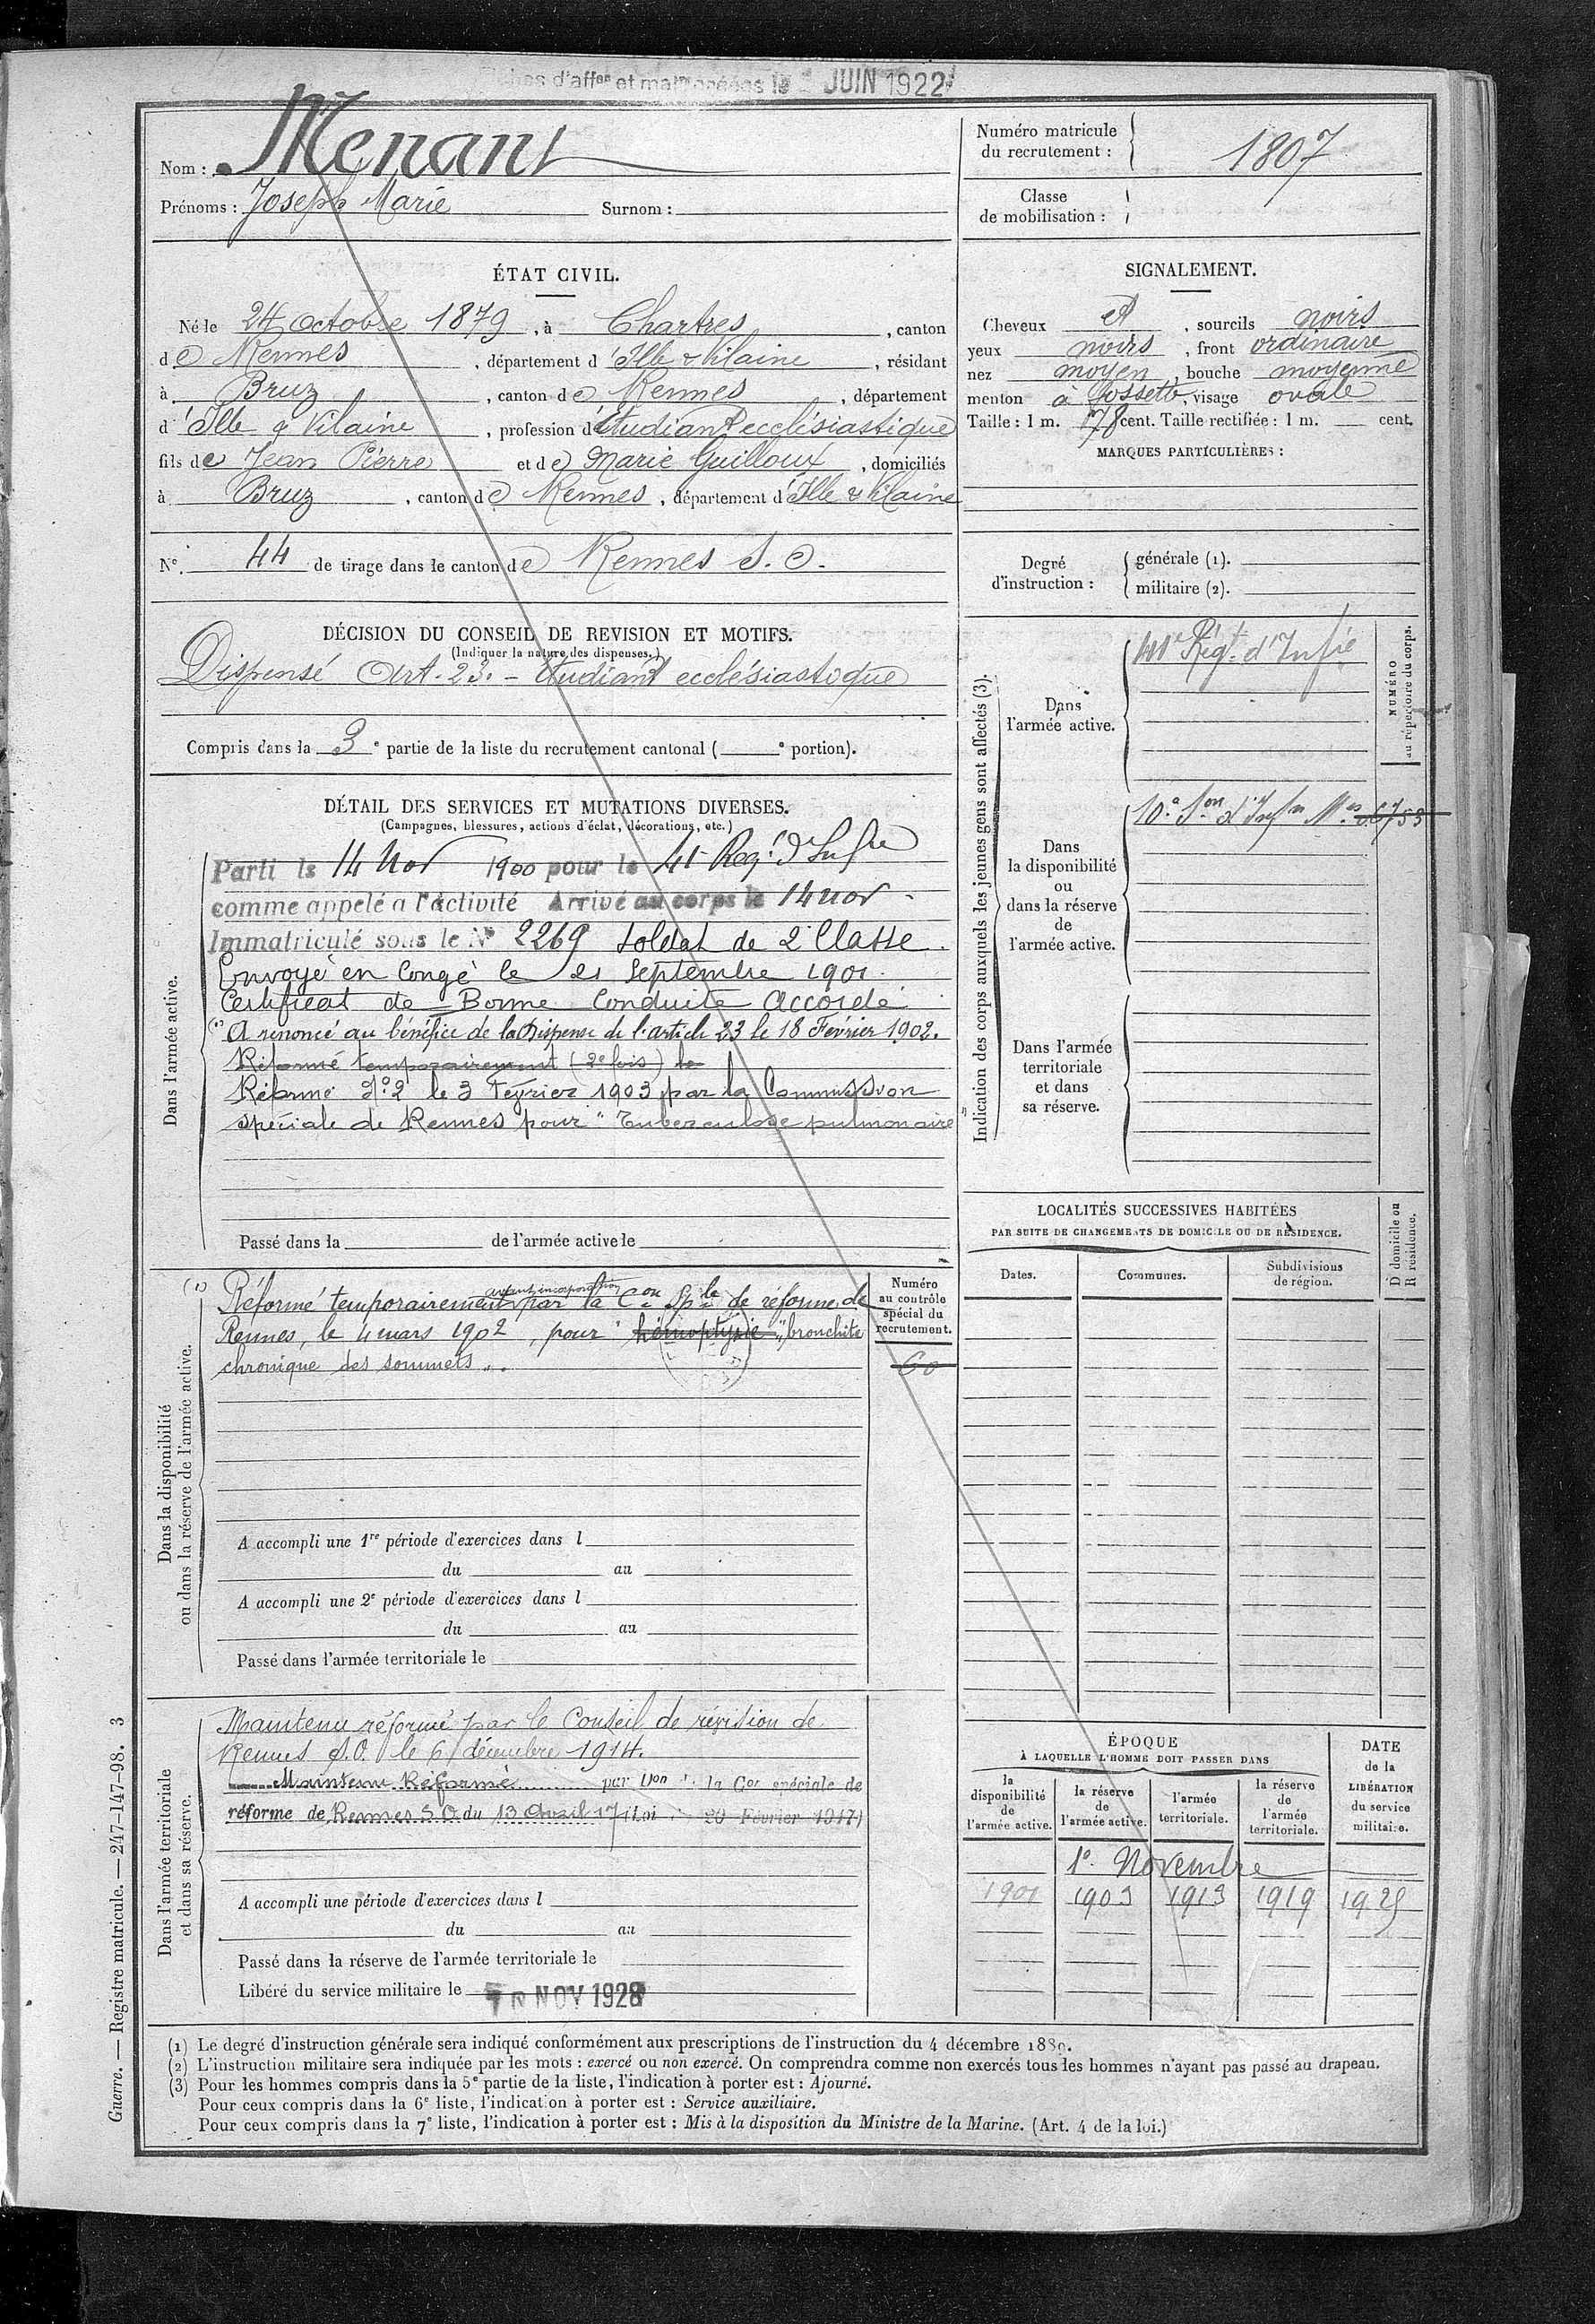 JUIN 1922
Nom : Menant
Prénoms : Joseph Marie Surnom :
Numéro matricule
du recrutement : 1807
Classe
de mobilisation :
ÉTAT CIVIL.
Né le 24 octobre 1879, à Chartres, canton
de Rennes, département d'Ille & Vilaine, résidant
à Bruz, canton de Rennes, département
d'Ille & Vilaine, profession d'Etudiant ecclésiastique
fils de Jean Pierre et de Marie Guilloux, domiciliés
à Bruz, canton de Rennes, département d'Ille & Vilaine
N° 44 de tirage dans le canton de Rennes S. O.
SIGNALEMENT.
Cheveux et, sourcils noirs
yeux noirs, front ordinaire
nez moyen, bouche moyenne
menton à fossette, visage ovale
Taille : 1 m. 78 cent. Taille rectifiée : 1 m. cent.
MARQUES PARTICULIÈRES :
Degré
d'instruction :
générale (1).
militaire (2).
DÉCISION DU CONSEIL DE REVISION ET MOTIFS.
(Indiquer la nature des dispenses.)
Dispensé Art. 23. - étudiant ecclésiastique
Compris dans la 3e partie de la liste du recrutement cantonal ( e portion).
DÉTAIL DES SERVICES ET MUTATIONS DIVERSES.
(Campagnes, blessures, actions d'éclat, décorations, etc.)
Dans l'armée active.
Parti le 14 Nov 1900 pour le 41e Reg. d'Infie
comme appelé a l'activité Arrivé au corps le 14 nov.
Immatriculé sous le N° 2269 soldat de 2e Classe.
Envoyé en Congé le 21 Septembre 1901.
Certificat de Bonne Conduite Accordé
(1) A renoncé au bénéfice de la Dispense de l'article 23 le 18 Février 1902.
Réformé temporairement (2e fois) le
Réformé N°2 le 3 Février 1903 par la Commission
spéciale de Rennes pour "Tuberculose pulmonaire"
Passé dans la de l'armée active le
Indication des corps auxquels les jeunes gens sont affectés (3).
Dans
l'armée active.
41e Régt. d'Infie
NUMÉRO
au répertoire du corps.
Dans
la disponibilité
ou
dans la réserve
de
l'armée active.
10e Son d'Infrs Mres 6753
Dans l'armée
territoriale
et dans
sa réserve.
LOCALITÉS SUCCESSIVES HABITÉES
PAR SUITE DE CHANGEMENTS DE DOMICILE OU DE RÉSIDENCE.
Dates. Communes. Subdivisions
de région.
D domicile ou
R résidence.
Dans la disponibilité
ou dans la réserve de l'armée active.
Numéro
au contrôle
spécial du
recrutement.
60
(1) avant incorporation
Réformé temporairement par la Con Sple de réforme de
Rennes, le 4 mars 1902, pour "hémoptysie" "bronchite
chronique des sommets".
A accompli une 1re période d'exercices dans l
du au
A accompli une 2e période d'exercices dans l
du au
Passé dans l'armée territoriale le
Dans l'armée territoriale
et dans sa réserve.
Maintenu réformé par le Conseil de révision de
Rennes S.O. le 6 décembre 1914.
Maintenu Réformé par Don la Con spéciale de
réforme de Rennes S.O. du 13 Avril 17 (Loi 20 Février 1917)
A accompli une période d'exercices dans l
du au
Passé dans la réserve de l'armée territoriale le
Libéré du service militaire le NOV 1928
ÉPOQUE
À LAQUELLE L'HOMME DOIT PASSER DANS
la
disponibilité
de
l'armée active.
la réserve
de
l'armée active.
l'armée
territoriale.
la réserve
de
l'armée
territoriale.
DATE
de la
LIBÉRATION
du service
militaire.
1er Novembre
1901 1903 1913 1919 1925
(1) Le degré d'instruction générale sera indiqué conformément aux prescriptions de l'instruction du 4 décembre 1889.
(2) L'instruction militaire sera indiquée par les mots : exercé ou non exercé. On comprendra comme non exercés tous les hommes n'ayant pas passé au drapeau.
(3) Pour les hommes compris dans la 5e partie de la liste, l'indication à porter est : Ajourné.
Pour ceux compris dans la 6e liste, l'indication à porter est : Service auxiliaire.
Pour ceux compris dans la 7e liste, l'indication à porter est : Mis à la disposition du Ministre de la Marine. (Art. 4 de la loi.)
Guerre. — Registre matricule. — 247-147-98. 3